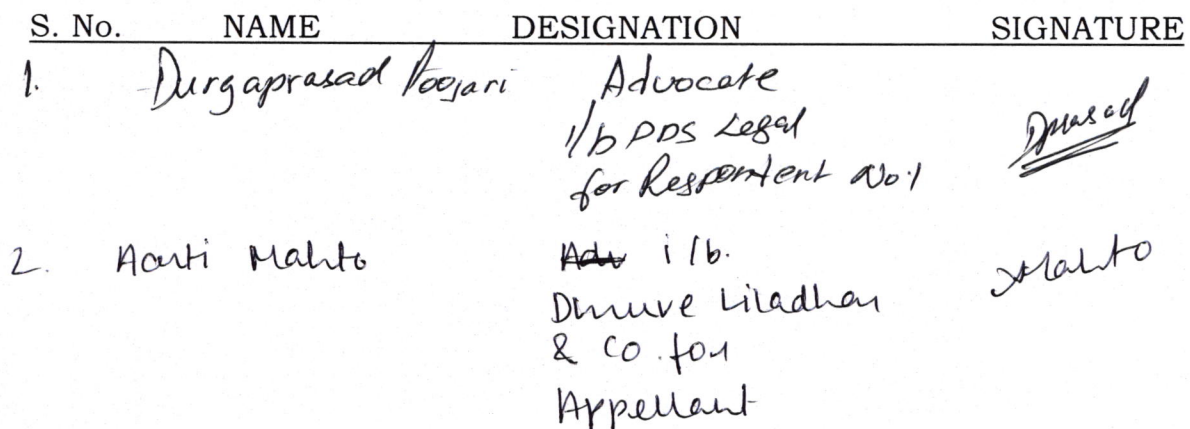 S. No. NAME DESIGNATION SIGNATURE
1. Durgaprasad Poojari Advocate
i/b PDS Legal
for Respondent No.1
Dprasad
2. Aarti Mahto Adv i/b.
Dhruve Liladhar
& Co. for
Appellant
AMahto